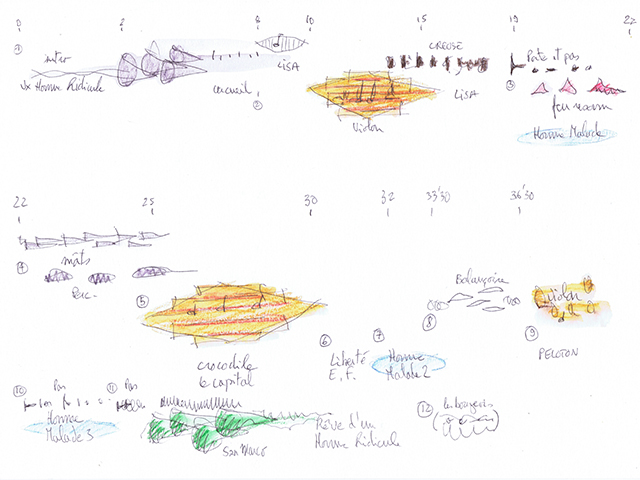 0 2 8 10 15 19 22
①
inter
Vx Homme Ridicule
cercueil
LISA
②
Violon
CREUSE
LISA
③
Porte et pas
feu room
Homme Malade
22 25 30 32 33'30 36'30
④
mâts
Perc.
⑤
crocodile
le capital
⑥
Liberté
E. F.
⑦
Homme
Malade 2
⑧
Balançoire
⑨
Violon
PELOTON
⑩
Pas
Homme
Malade 3
⑪
Pas
San Marco
Rêve d'un
Homme Ridicule
⑫
les bourgeois